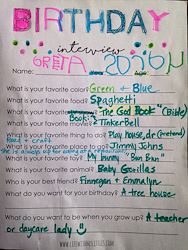 BIRTHDAY
interview
GRETA
Name:
What is your favorite color? Green + Blue
What is your favorite food? Spaghetti
What is your favorite book? The God Book" (Bible)
What is your favorite movie? TinkerBell
What is your favorite thing to do? Play house, dr (pretend)
craft
What is your favorite place to go? Jimmy Johns
What is your favorite toy? My bunny "Bun Bun"
What is your favorite animal? Baby Gorillas
Who is your best friend? Finnegan + Emmalyn
What do you want for your birthday? A tree house
What do you want to be when you grow up? A teacher
or daycare lady